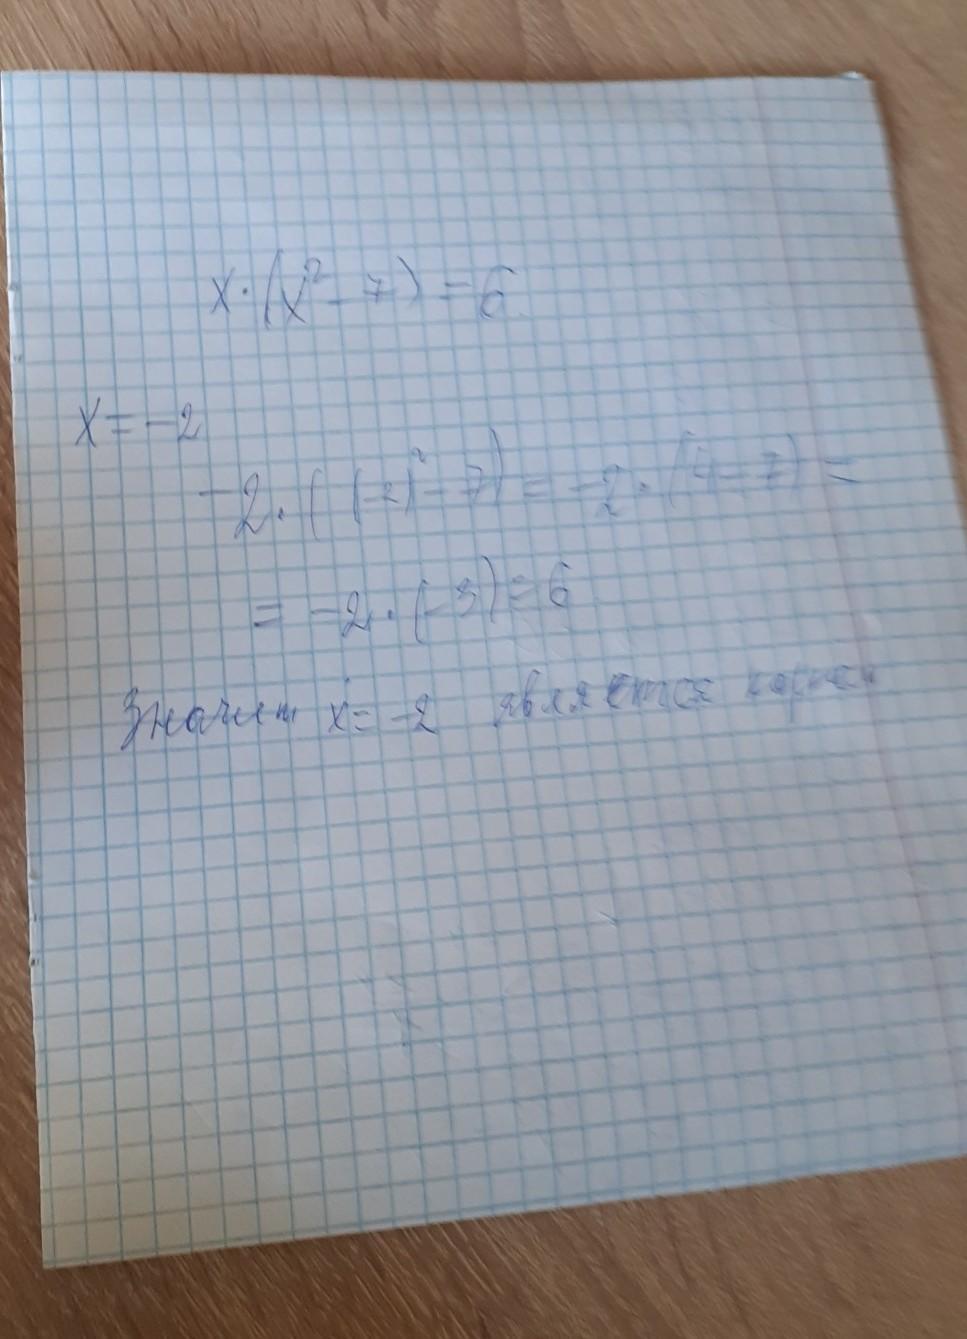 x·(x²-7)=6
x=-2
-2·((-2)²-7)=-2·(4-7)=
=-2·(-3)=6
Значит x=-2 является корнем